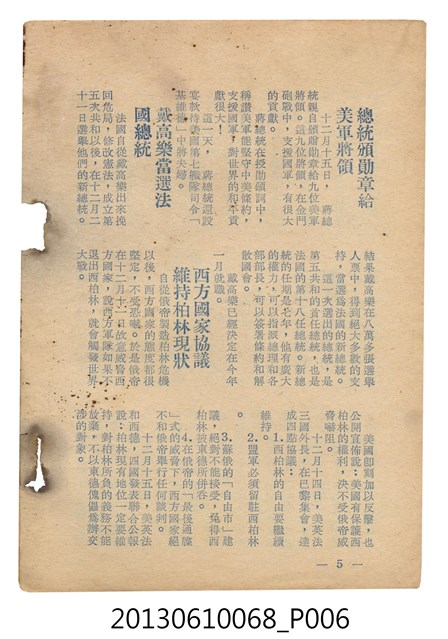 總統頒勛章給
美軍將領
十二月十五日，蔣總
統親自頒贈勛章給九位美軍
將領。這九位將領，在金門
砲戰中，支援國軍，有很大
的貢獻。
蔣總統在授勛頒詞中，
稱讚美軍能堅守中美條約，
支援國軍，對世界的和平貢
獻很大！
這一天，蔣總統還設
宴款待美國第七艦隊司令「
基維德」中將夫婦。
戴高樂當選法
國總統
法國自從戴高樂出來挽
回危局，修改憲法，成立第
五次共和以後，在十二月二
十一日選舉他們的新總統。
結果戴高樂在八萬多張選舉
人票中，得到絕大多數的支
持，當選爲法國的新總統。
這一次選出的總統，是
第五共和的首任總統，也是
法國的第十八任總統。新總
統的任期是七年，他有廣大
的權力，可以指派總理和各
部部長，可以簽署條約和解
散國會。
戴高樂已經決定在今年
一月就職。
西方國家協議
維持柏林現狀
自從俄帝製造柏林危機
以後，西方國家的態度都很
堅定，不受恐嚇。於是俄帝
在十二月十二日故意威脅西
方國家，說西方軍隊如果不
退出西柏林，就會觸發世界
大戰。
美國即刻加以反擊，也
公開宣佈說：美國有保護西
柏林的權利，決不受俄帝威
脅嚇阻。
十二月十四日，美英法
三國外長，在巴黎集會，達
成四點協議：
1.西柏林的自由要繼續
維持。
2.盟軍必須留駐西柏林
。
3.蘇俄的「自由市」建
議，絕對不能接受，免得西
柏林被東德所併吞。
4.在俄帝的「最後通牒
」式的威脅下，西方國家絕
不和俄帝舉行任何談判。
十二月十五日，美英法
和西德，四國發表聯合公報
說：柏林現有地位一定要維
持，對柏林所負的義務不能
放棄，不以東德傀儡爲辦交
涉的對象。
— 5 —
20130610068_P006